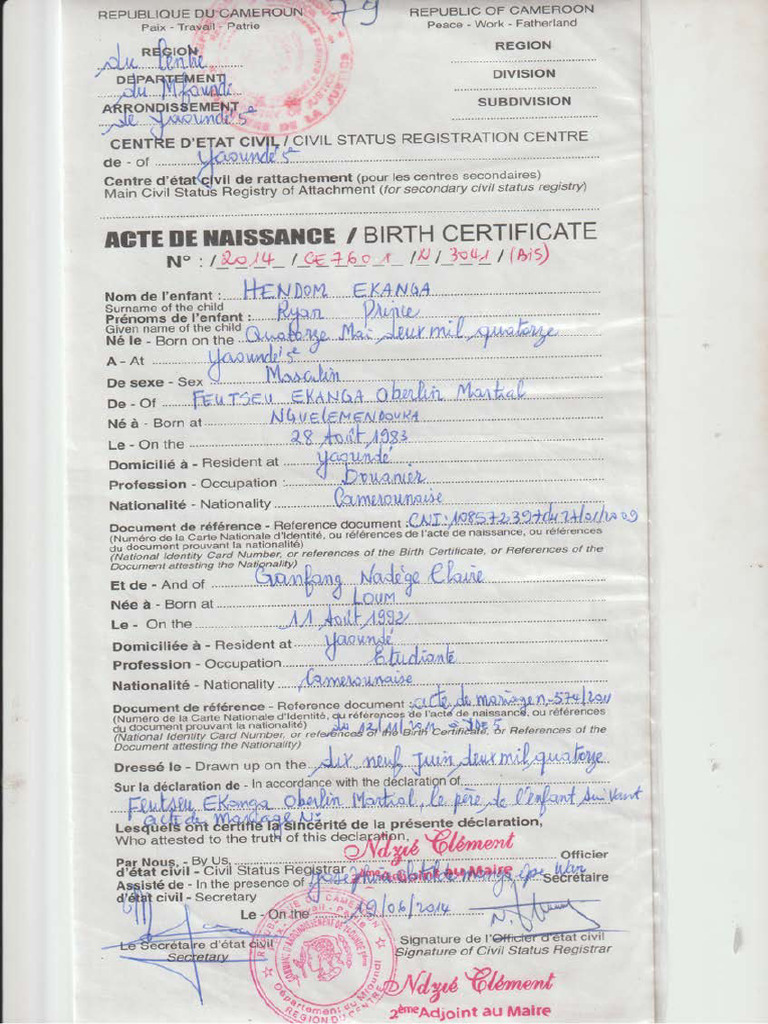 79
REPUBLIQUE DU CAMEROUN
Paix - Travail - Patrie
REPUBLIC OF CAMEROON
Peace - Work - Fatherland
REGION
du Centre
DEPARTEMENT
du Mfoundi
ARRONDISSEMENT
de Yaoundé 5e
REGION
DIVISION
SUBDIVISION
CENTRE D'ETAT CIVIL / CIVIL STATUS REGISTRATION CENTRE
de - of Yaoundé 5e
Centre d'état civil de rattachement (pour les centres secondaires)
Main Civil Status Registry of Attachment (for secondary civil status registry)
ACTE DE NAISSANCE / BIRTH CERTIFICATE
N° : / 2014 / CE7601 / N / 3041 / (Bis)
Nom de l'enfant : HENDOM EKANGA
Surname of the child
Prénoms de l'enfant : Ryan Prince
Given name of the child
Né le - Born on the Quatorze Mai deux mil quatorze
A - At Yaoundé 5e
De sexe - Sex Masculin
De - Of FEUTSEU EKANGA Oberlin Martial
Né à - Born at NGUELEMENDOUKA
Le - On the 28 Août 1983
Domicilié à - Resident at Yaoundé
Profession - Occupation : Douanier
Nationalité - Nationality Camerounaise
Document de référence - Reference document : CNI:
(Numéro de la Carte Nationale d'Identité, ou références de l'acte de naissance, ou références
du document prouvant la nationalité)
(National Identity Card Number, or references of the Birth Certificate, or References of the
Document attesting the Nationality)
Et de - And of Ganfang Nadège Claire
Née à - Born at LOUM
Le - On the 11 Août 1992
Domiciliée à - Resident at Yaoundé
Profession - Occupation Etudiante
Nationalité - Nationality Camerounaise
Document de référence - Reference document : acte de mariage n- 574/2011
(Numéro de la Carte Nationale d'Identité, ou références de l'acte de naissance, ou références
du document prouvant la nationalité)
(National Identity Card Number, or references of the Birth Certificate, or References of the
Document attesting the Nationality)
Dressé le - Drawn up on the dix neuf Juin deux mil quatorze
Sur la déclaration de - In accordance with the declaration of
Feutseu Ekanga Oberlin Martial, le père de l'enfant suivant
acte de Mariage N°
Lesquels ont certifié la sincérité de la présente déclaration,
Who attested to the truth of this declaration,
Ndzié Clément
2ème Adjoint au Maire
Par Nous, - By Us, Officier
d'état civil - Civil Status Registrar
Assisté de - In the presence of Secrétaire
d'état civil - Secretary
Le - On the 19/06/2014
Le Secrétaire d'état civil
Secretary
Signature de l'Officier d'état civil
Signature of Civil Status Registrar
Ndzié Clément
2ème Adjoint au Maire
Département du Mfoundi
REGION DU CENTRE